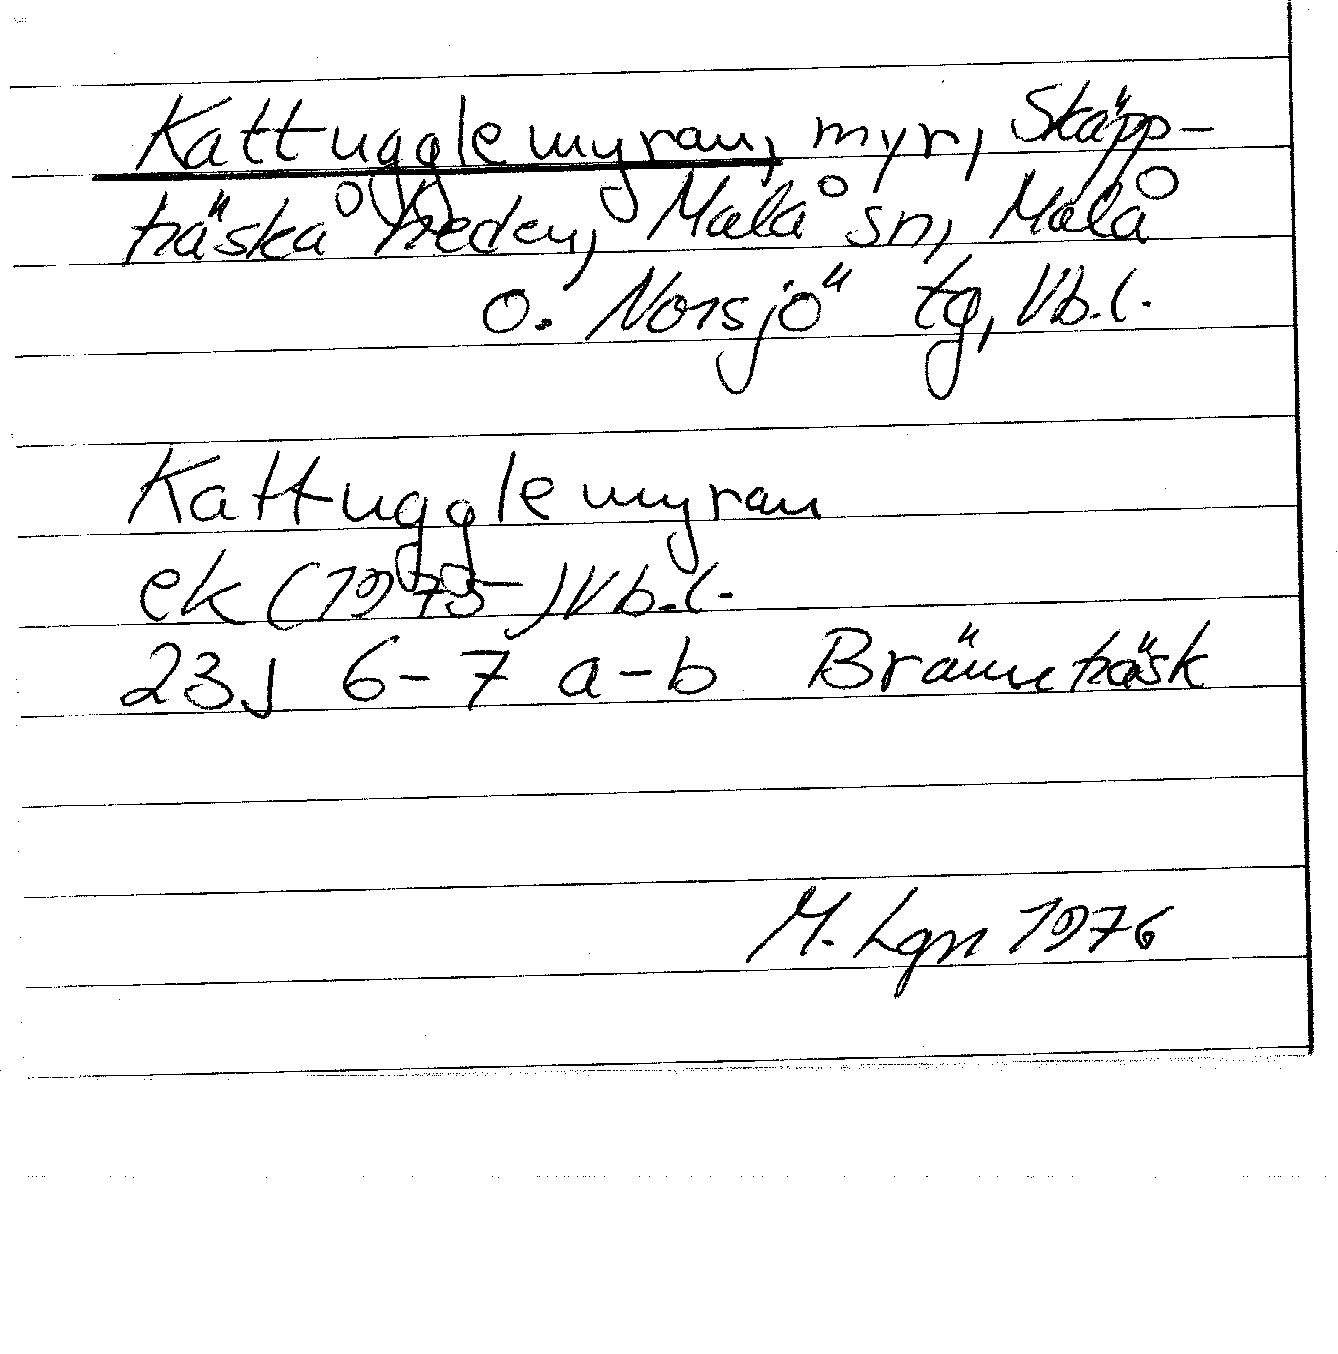 Kattugglemyran, myr, Skäpp-
träskåheden, Malå sn, Malå
o. Norsjö tg, Vb.l.
Kattugglemyran
ek (1975) Vb.l.
23J 6-7 a-b Brännträsk
M. Lgn 1976